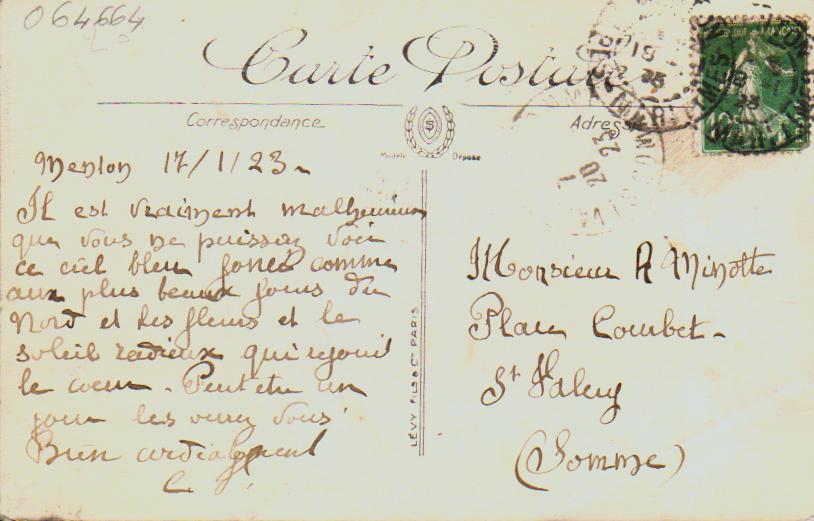 064664
Carte Postale
Correspondance
Adresse
Modèle Déposé
Menton 17/1/23
Il est vraiment malheureux
que vous ne puissiez voir
ce ciel bleu foncé comme
aux plus beaux jours du
Nord et les fleurs et le
soleil radieux qui rejouit
le coeur. Peut etre un
jour les verrez vous!
Bien cordialement
LÉVY FILS & Cie PARIS
Monsieur R Minotte
Place Courbet
St Valery
(Somme)